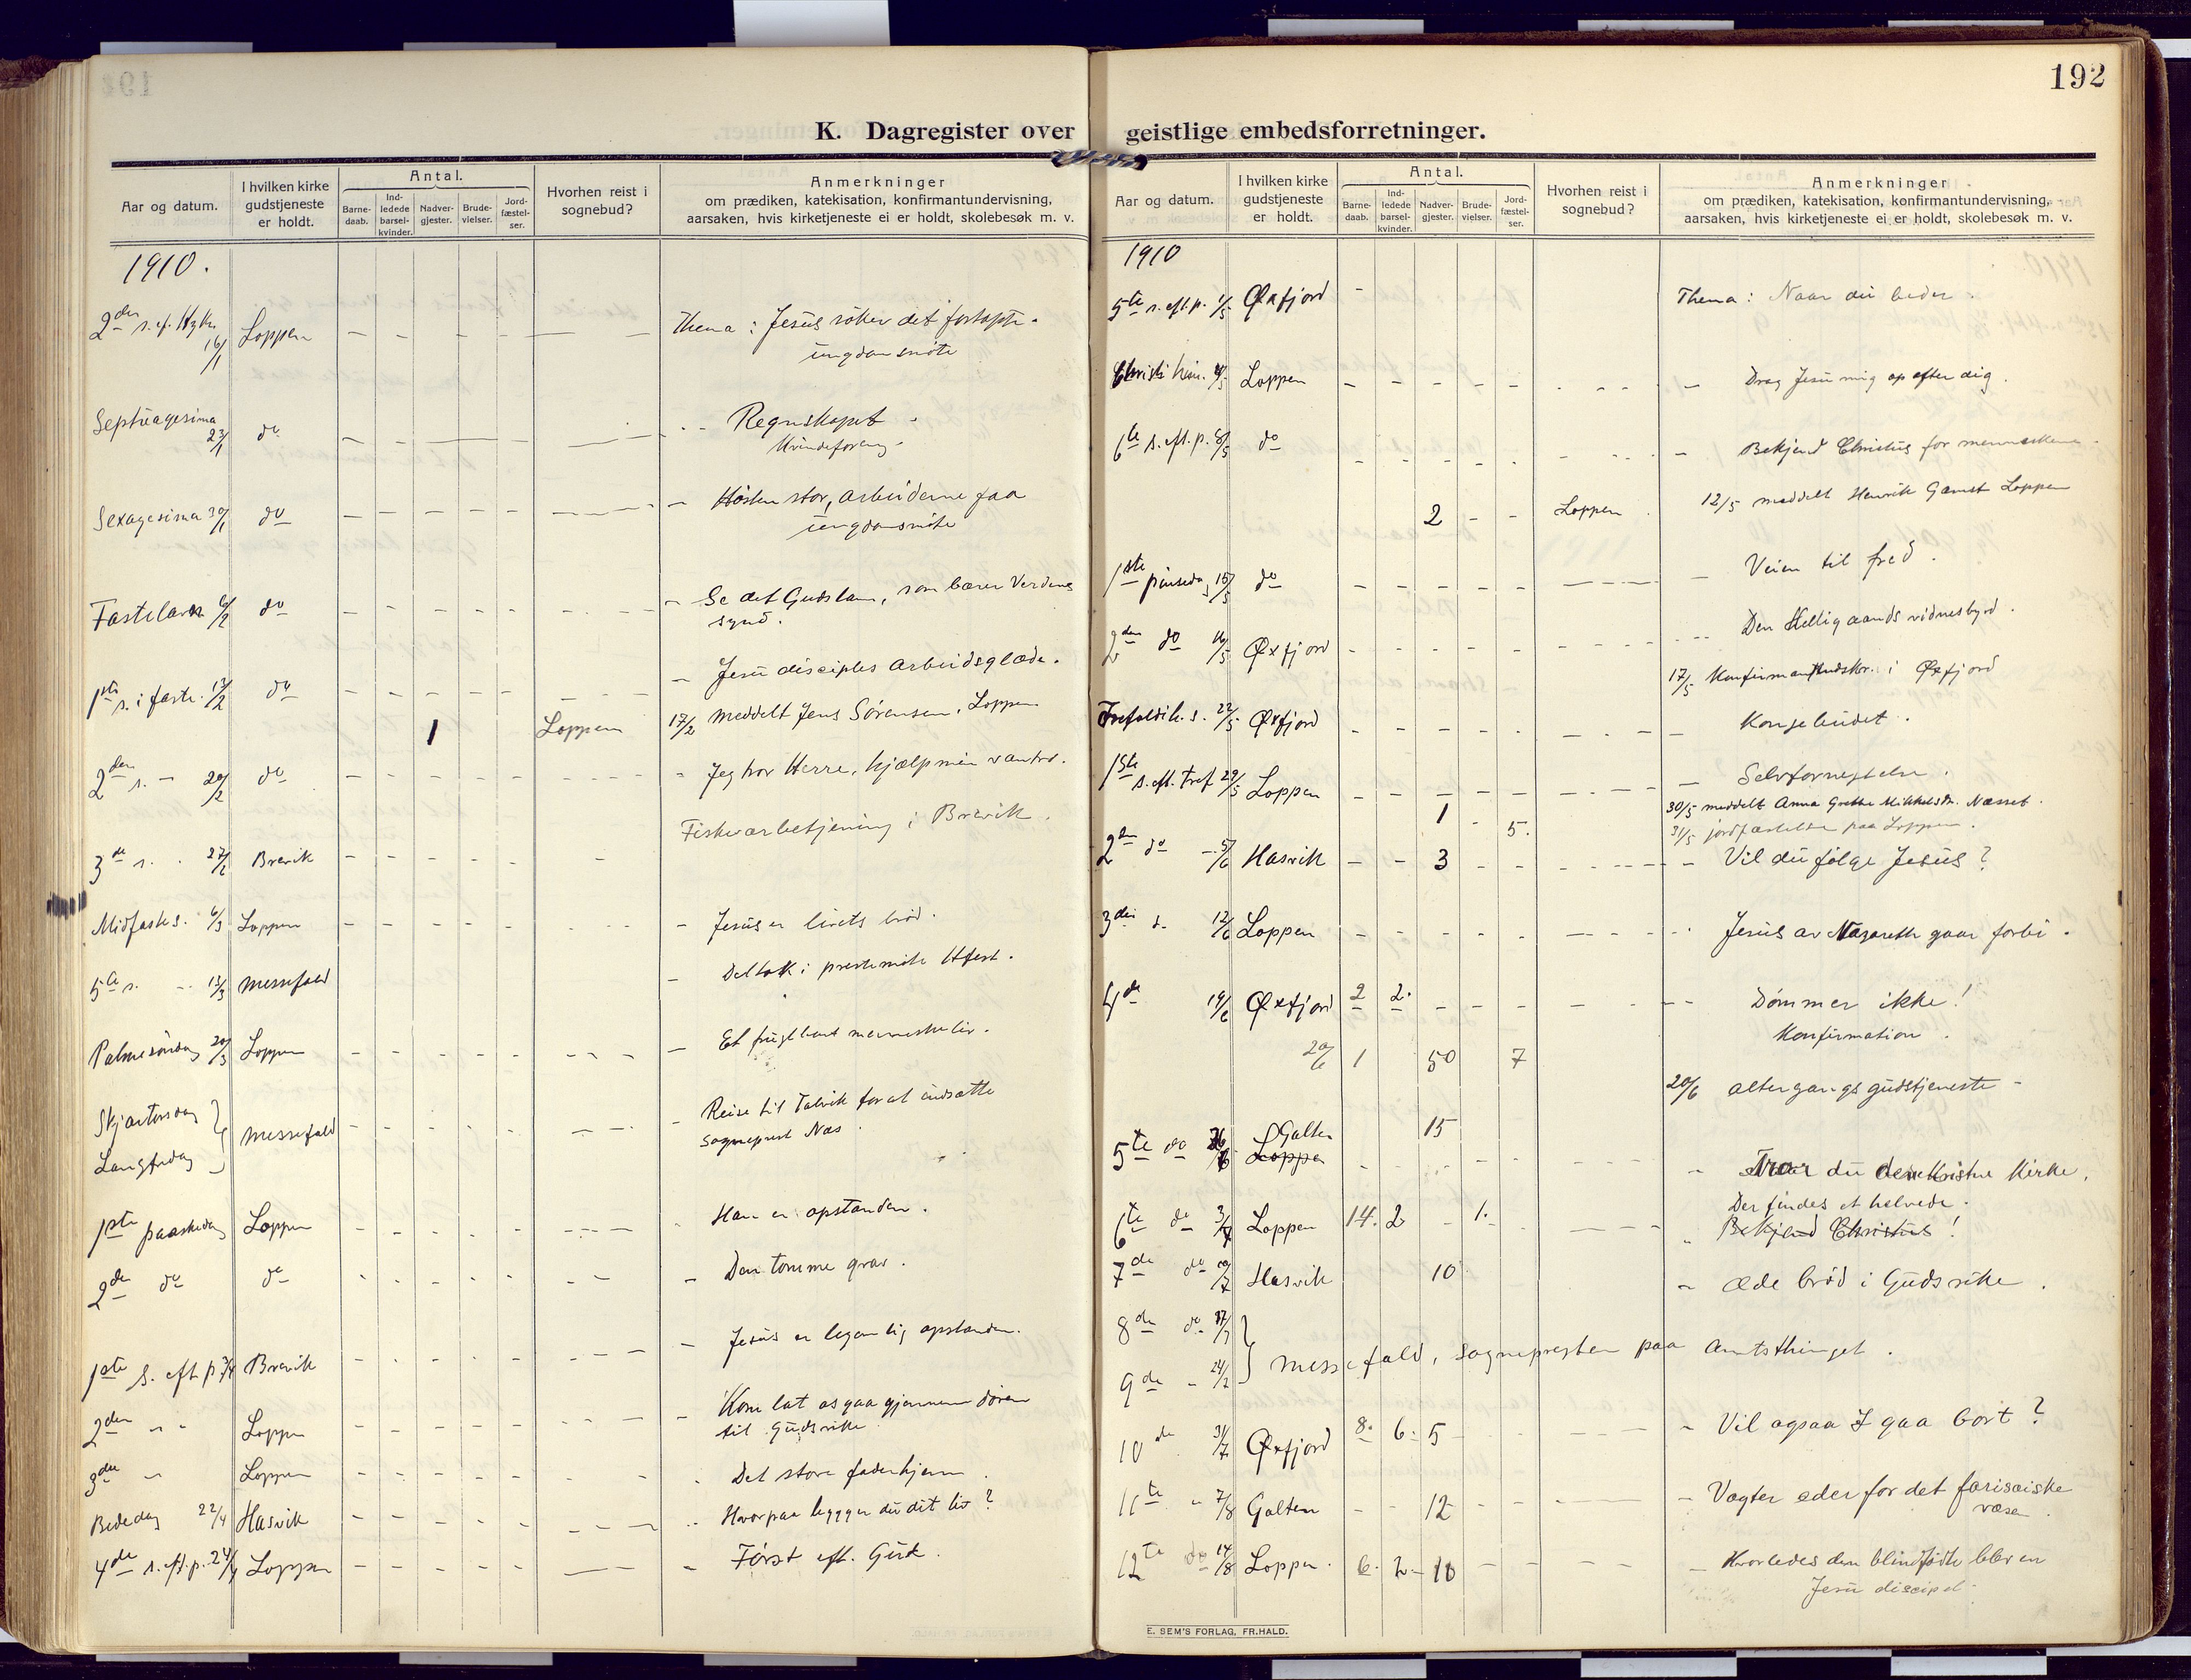 192
K. Dagregister over geistlige embedsforretninger.
Aar og datum.
I hvilken kirke gudstjeneste er holdt.
Antal.
Barne-daab.
Ind-ledede barsel-kvinder.
Nadver-gjester.
Brude-vielser.
Jord-fæstel-ser.
Hvorhen reist i sognebud?
Anmerkninger
om prædiken, katekisation, konfirmantundervisning,
aarsaken, hvis kirketjeneste ei er holdt, skolebesøk m. v.
1910.
2den s. ef. H3K 16/1 Loppen Thema: Jesus søker det fortapte.
ungdomsmøte
Septuagesima 23/1 do Regnskapet
Kvindeforening
Sexagesima 30/1 do Høsten stor, arbeiderne faa
ungdomsmøte
Fastelavn 6/2 do Se det Guds lam, som bærer Verdens
synd.
1ste s. i faste. 13/2 do Jesu disciples arbeidsglæde.
1 Loppen 17/2 meddelt Jens Sørensen, Loppen
2den s. 20/2 do Jeg tror Herre, hjælp min vantro.
Fiskeværbetjening i Brevik.
3de s. 27/2 Brevik
Midfastes. 6/3 Loppen Jesus er livets brød.
5te s. 13/3 Messefald Deltok i prestemøte Hfest.
Palmesøndag 20/3 Loppen Et frugtbart menneskeliv.
Skjærtorsdag
Langfredag } Messefald Reise til Talvik for at indsætte
sogneprest Næs.
1ste paaskedag Loppen Han er opstanden.
2den do do Den tomme grav.
1ste s. eft p 3/4 Brevik Jesus er legemlig opstanden.
2den " " Loppen Kom lat os gaa gjennem døren
til Guds rike
3die " Loppen Det store faderhjem.
Bededag 22/4 Hasvik Hvorpaa bygger du dit liv?
4de s. eft. p. 24/4 Loppen Først eft. Gud.
Aar og datum.
I hvilken kirke gudstjeneste er holdt.
Antal.
Barne-daab.
Ind-ledede barsel-kvinder.
Nadver-gjester.
Brude-vielser.
Jord-fæstel-ser.
Hvorhen reist i sognebud?
Anmerkninger
om prædiken, katekisation, konfirmantundervisning,
aarsaken, hvis kirketjeneste ei er holdt, skolebesøk m. v.
1910
5te s. eft. p. 1/5 Øxfjord Thema: Naar du beder.
Christi him. 5/5 Loppen Drag Jesu mig op efter dig.
6te s. eft. p. 8/5 do Bekjend Christus for menneskene.
2 Loppen 12/5 meddelt Henrik Gamst Loppen
1ste pinsedag 15/5 do Veien til fred.
2den do 16/5 Øxfjord Den Helligaands vidnesbyrd.
17/5 Konfirmantindskr. i Øxfjord
Trefoldih. s. 22/5 Øxfjord Kongebudet.
1ste s. eft. tref 29/5 Loppen Selvfornegtelse.
1 30/5 meddelt Anna Grethe Mikkelsdr. Næsset.
5. 31/5 jordfæstelse paa Loppen.
2den do 5/6 Hasvik 3 Vil du følge Jesus?
3die s. 12/6 Loppen Jesus av Nazareth gaar forbi.
4de 19/6 Øxfjord 2 2. Dømmer ikke!
Konfirmation.
20/6 1 50 7
20/6 altergangsgudstjeneste
5te do 26/6 Galten Loppen 15 Tror du den Kristne Kirke.
Der findes et helvede.
6te do 3/7 Loppen 14. 2 1. Bekjend Christus!
7de do 10/7 Hasvik 10 Æde brød i Guds rike.
8de do 17/7
9de " 24/7 } Messefald, sognepresten paa Amtsthinget.
10de 31/7 Øxfjord 8. 6. 5 Vil ogsaa I gaa bort?
11te " 7/8 Galten 12 Vogter eder for det farisæiske
væsen.
12te do 14/8 Loppen. 6. 2 10 Hvorledes den blindfødte blev en
Jesu discipel.
E. SEM'S FORLAG, FR.HALD.